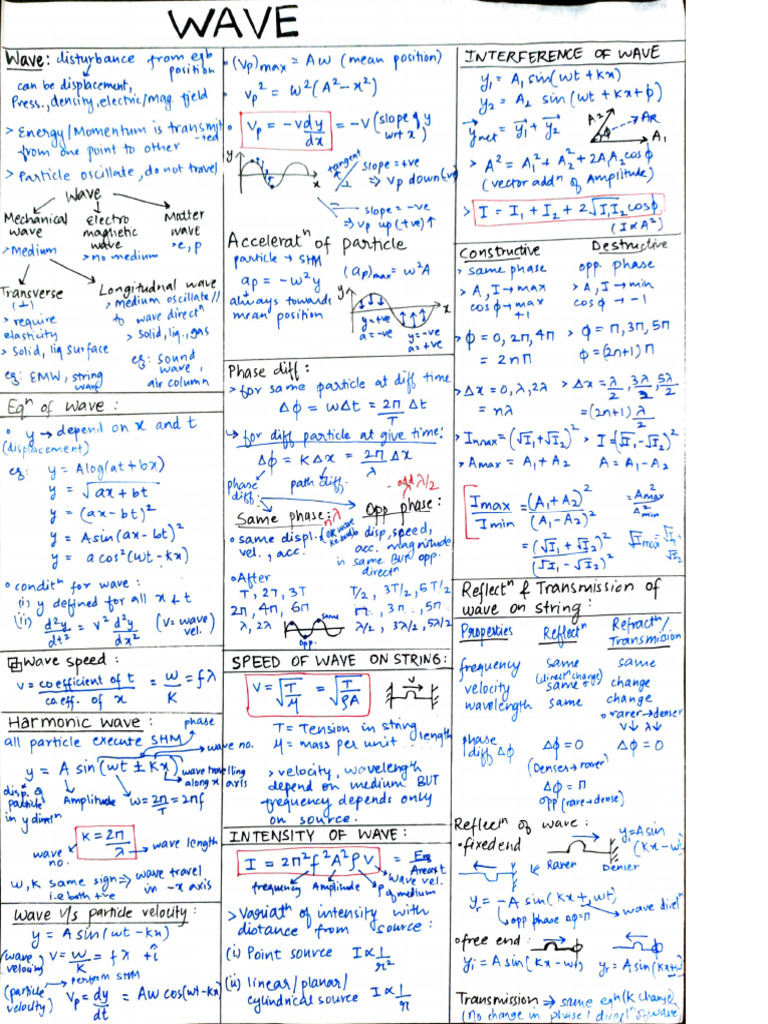 WAVE
Wave: disturbance from eqb
position
can be displacement,
Press., density, electric/mag. field
> Energy/Momentum is transmit
-ted
from one point to other
> Particle oscillate, do not travel
Wave
Mechanical wave
> Medium
electro magnetic wave
> no medium
Matter wave
> e, p
Transverse
(⊥)
> require
elasticity
> Solid, liq surface
eg: EMW, string
wave
Longitudinal wave
> Medium oscillate //
to wave directⁿ
> Solid, liq, gas
eg: sound
wave,
air column
Eqⁿ of wave:
• y → depend on x and t
(displacement)
eg: y = A log(at+bx)
y = √ax+bt
y = (ax-bt)²
y = A sin(ax-bt)²
y = a cos²(wt-kx)
• conditⁿ for wave:
(i) y defined for all x & t
(ii) d²y/dt² = v² d²y/dx² (v= wave
vel.)
Wave speed:
v = coefficient of t / coeff. of x = w/K = fλ
Harmonic wave:
phase
all particle execute SHM
wave no.
y = A sin(wt ± Kx)
wave travelling
along x axis
disp. of
particle
in y directⁿ
Amplitude
w = 2π/T = 2πf
K = 2π/λ
wave
no.
wave length
w, K same sign ⇒ wave travel
i.e both +ve in -x axis
Wave v/s particle velocity:
y = A sin(wt-kx)
(wave
velocity) v = w/K = fλ +î
perform SHM
(particle
velocity) Vp = dy/dt = Aw cos(wt-kx)
• (Vp)max = Aw (mean position)
• Vp² = w²(A²-x²)
• Vp = -v dy/dx = -v (slope of y
wrt x)
y
x
tangent
slope = +ve
⇒ Vp down(-ve)
slope = -ve
⇒ Vp up (+ve) ↑
Acceleratⁿ of particle
particle → SHM
ap = -w²y
(ap)max = w²A
always towards
mean position
y
x
y=+ve
a=-ve
y=-ve
a=+ve
Phase diff:
> for same particle at diff time
Δφ = wΔt = 2π/T Δt
for diff particle at give time:
Δφ = KΔx = 2π/λ Δx
phase
diff.
path diff.
Same phase:
nλ
Opp phase:
odd λ/2
• same displ.
vel., acc.
• disp, speed,
acc. magnitude
in same BUT opp.
directⁿ
• After
T, 2T, 3T
2π, 4π, 6π
λ, 2λ
T/2, 3T/2, 5T/2
π, 3π, 5π
λ/2, 3λ/2, 5λ/2
same
opp.
SPEED OF WAVE ON STRING:
V = √T/μ = √T/ρA
v
T = Tension in string
μ = mass per unit length
> velocity, wavelength
depend on medium BUT
frequency depends only
on source.
INTENSITY OF WAVE:
I = 2π²f²A²ρv
frequency Amplitude ρ of medium
wave vel.
> Variatⁿ of intensity with
distance from source:
(i) Point source I ∝ 1/r²
(ii) linear/planar/
cylindrical source I ∝ 1/r
INTERFERENCE OF WAVE
y₁ = A₁ sin(wt+kx)
y₂ = A₂ sin(wt+kx+φ)
ynet = y₁ + y₂
A₂
AR
φ
A₁
> A² = A₁² + A₂² + 2A₁A₂cosφ
(vector addⁿ of Amplitude)
> I = I₁ + I₂ + 2√I₁I₂ cosφ
(I∝A²)
Constructive
> same phase
> A, I → max
cosφ → max
+1
> φ = 0, 2π, 4π
= 2nπ
> Δx = 0, λ, 2λ
= nλ
> Imax = (√I₁+√I₂)²
> Amax = A₁ + A₂
Destructive
opp. phase
> A, I → min
cosφ → -1
> φ = π, 3π, 5π
φ = (2n+1)π
> Δx = λ/2, 3λ/2, 5λ/2
= (2n+1) λ/2
> I = (√I₁-√I₂)²
A = A₁-A₂
Imax/Imin = (A₁+A₂)²/(A₁-A₂)² = A²max/A²min
= (√I₁+√I₂)²/(√I₁-√I₂)²
Reflectⁿ & Transmission of
wave on string:
Properties Reflectⁿ Refractⁿ/
Transmission
frequency same same
(directⁿ change)
velocity same change
wavelength same change
• rarer→denser
v↓ λ↓
phase
diff Δφ Δφ = 0 Δφ = 0
(Denser→rarer)
Δφ = π
opp (rare→dense)
Reflectⁿ of wave:
• fixed end
yi = A sin
(Kx-w
Rarer Denser
yr = -A sin(Kx+wt)
opp phase Δφ=π
wave direⁿ
• free end:
yi = A sin(Kx-wt) yr = A sin(Kx+wt
Transmission → same eqn (K change)
(no change in phase / directⁿ of wave)